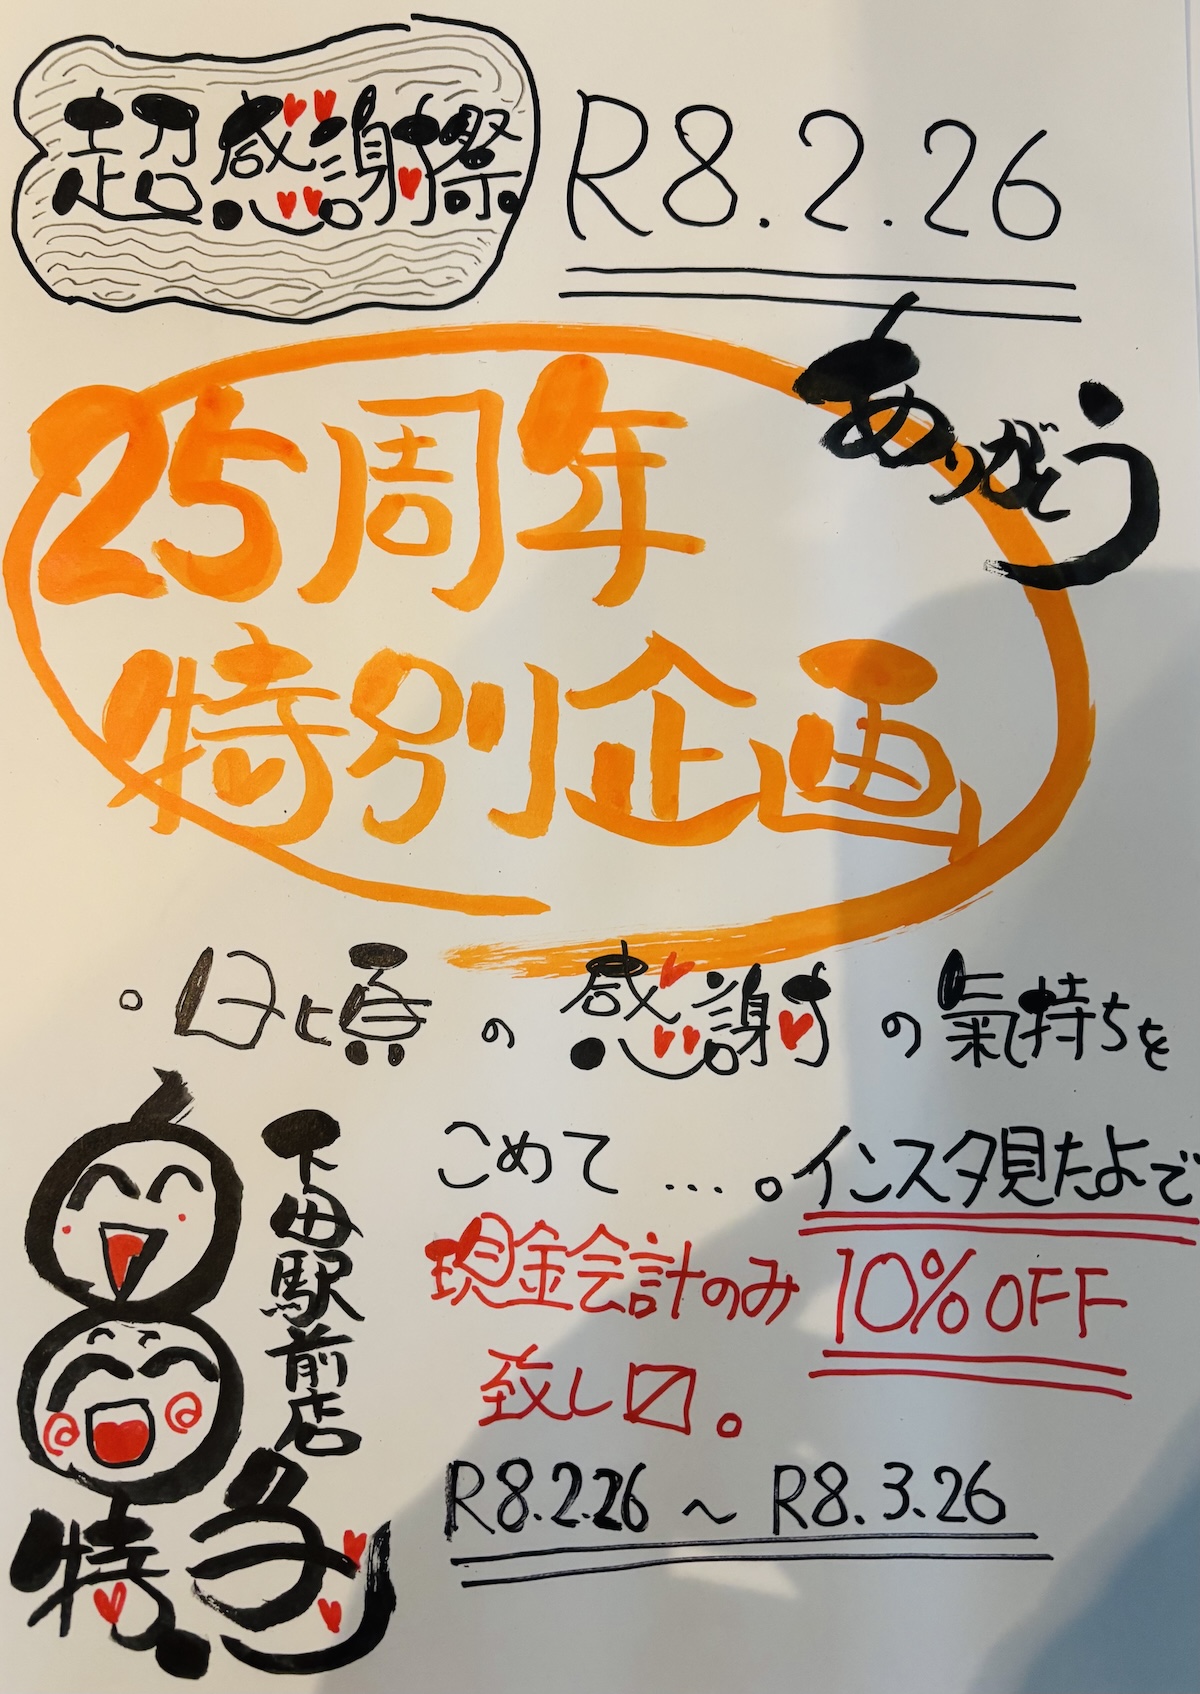 超感謝祭
R8.2.26
ありがとう
25周年
特別企画
。日頃の感謝の氣持ちを
こめて…。インスタ見たよで
現金会計のみ10%OFF
致し〼。
R8.2.26～R8.3.26
下田駅前店